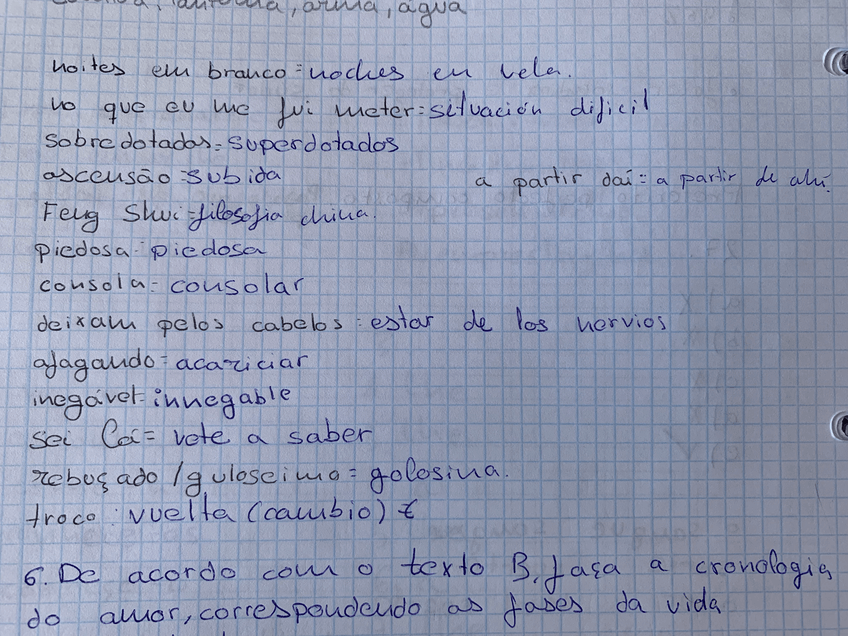 lanterna, arma, água
noites em branco = noches en vela.
no que eu me fui meter: situación dificil
sobredotados = superdotados
ascensão = subida
a partir daí = a partir de ahí.
Feng Shui = filosofia china.
piedosa = piedosa
consola = consolar
deixam pelos cabelos: estar de los nervios
afagando = acariciar
inegável = innegable
sei lá = vete a saber
rebuçado / guloseima = golosina.
troco: vuelta (cambio) €
6. De acordo com o texto B, faça a cronologia
do amor, correspondendo as fases da vida